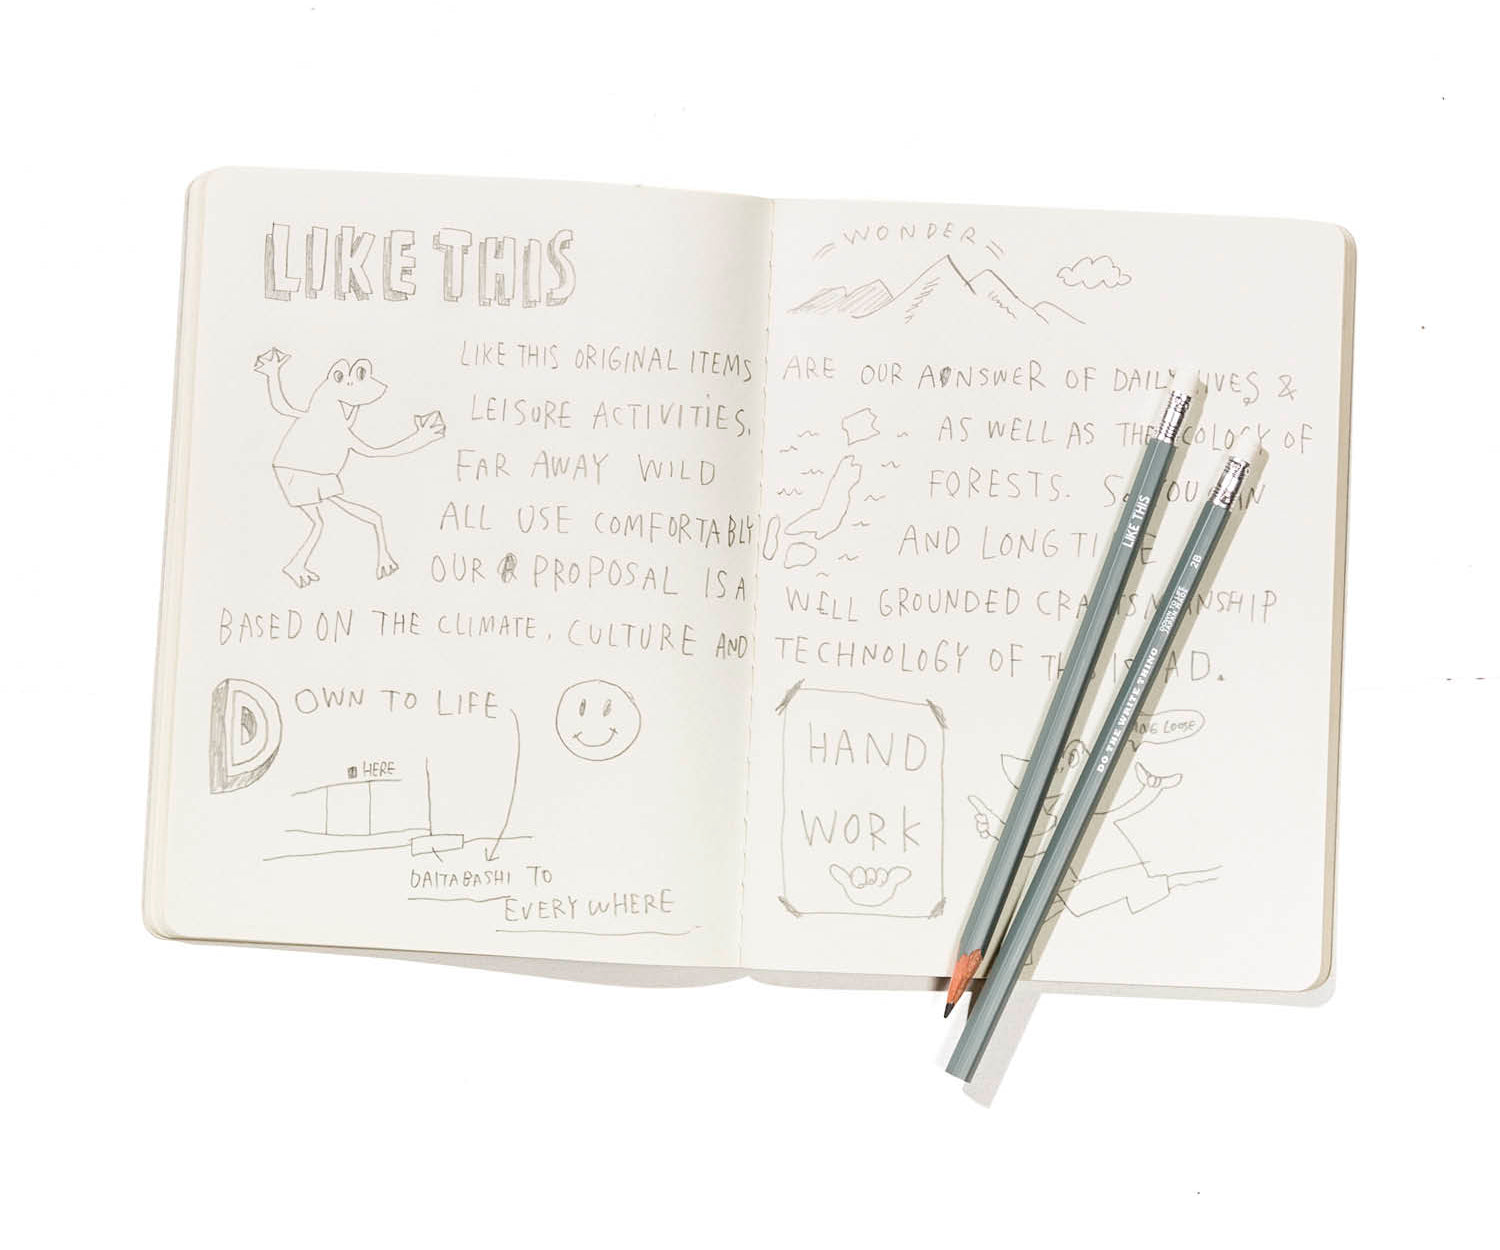 LIKE THIS
LIKE THIS ORIGINAL ITEMS
LEISURE ACTIVITIES,
FAR AWAY WILD
ALL USE COMFORTABLY
OUR PROPOSAL IS A
BASED ON THE CLIMATE, CULTURE AND
DOWN TO LIFE
HERE
DAITABASHI TO
EVERYWHERE
WONDER
ARE OUR ANSWER OF DAILY LIVES &
AS WELL AS THE ECOLOGY OF
FORESTS. SO YOU CAN
AND LONG TIME
WELL GROUNDED CRAFTSMANSHIP
TECHNOLOGY OF THIS LAD.
HAND
WORK
LOOSE
LIKE THIS
DO THE WRITE THING
2B